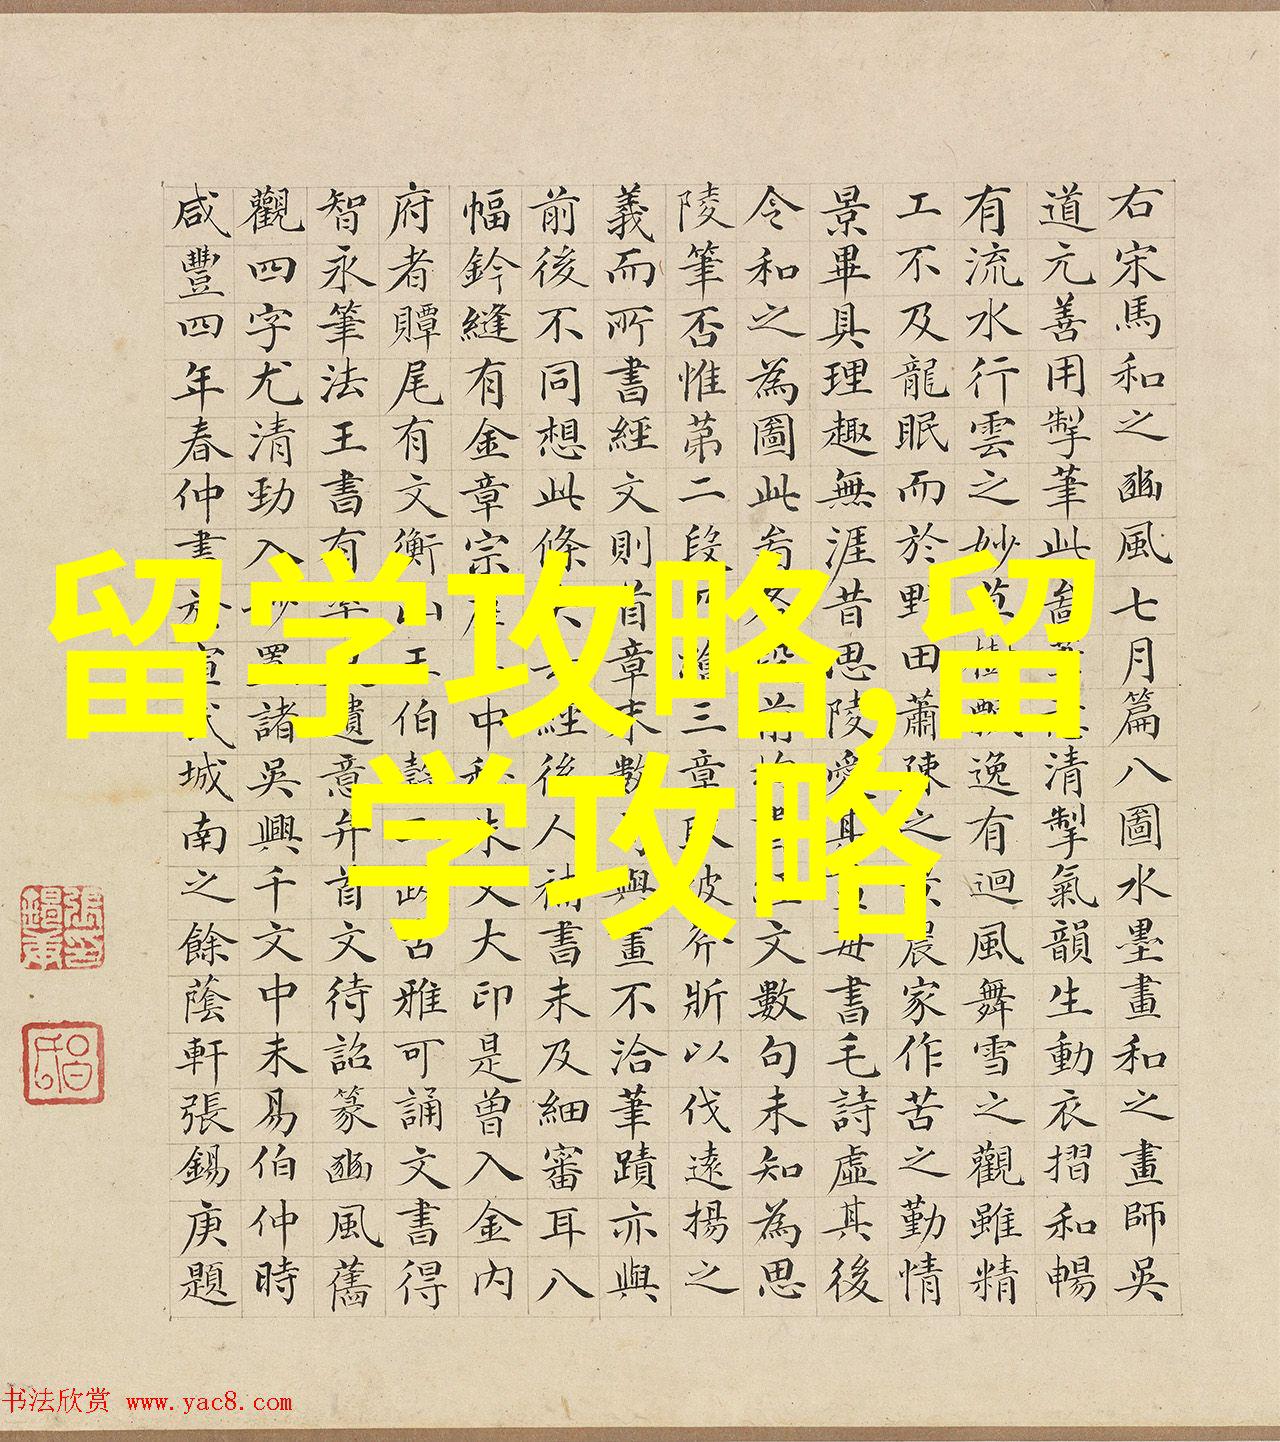 右宋馬和之豳風七月篇八圖水墨畫和之畫師吳
道元善用掣筆此清掣氣韻生動衣摺和暢
有流水行雲之妙草樹飄逸有迴風舞雪之觀雖精
工不及龍眠而於野田蕭陳之景農家作苦之勤情
景畢具理趣無涯昔思陵愛其畫每書毛詩虛其後
令和之為圖此前文數句未知為思
陵筆否惟第二段三章取彼斧斨以伐遠揚之
義而所書經文則首章末數句與畫不洽筆蹟亦與
前後不同想此條經後人補書未及細審耳八
幅鈐縫有金章宗中秘朱文大印是曾入金內
府者贉尾有文衡山王伯穀二跋古雅可誦文書得
智永筆法王書有率更遺意弁首文待詔篆豳風舊
觀四字尤清勁入妙置諸吳興千文中未易伯仲時
咸豐四年春仲書於宣武城南之餘蔭軒張錫庚題
留学攻略,留
学攻略
书法欣赏 www.yac8.com